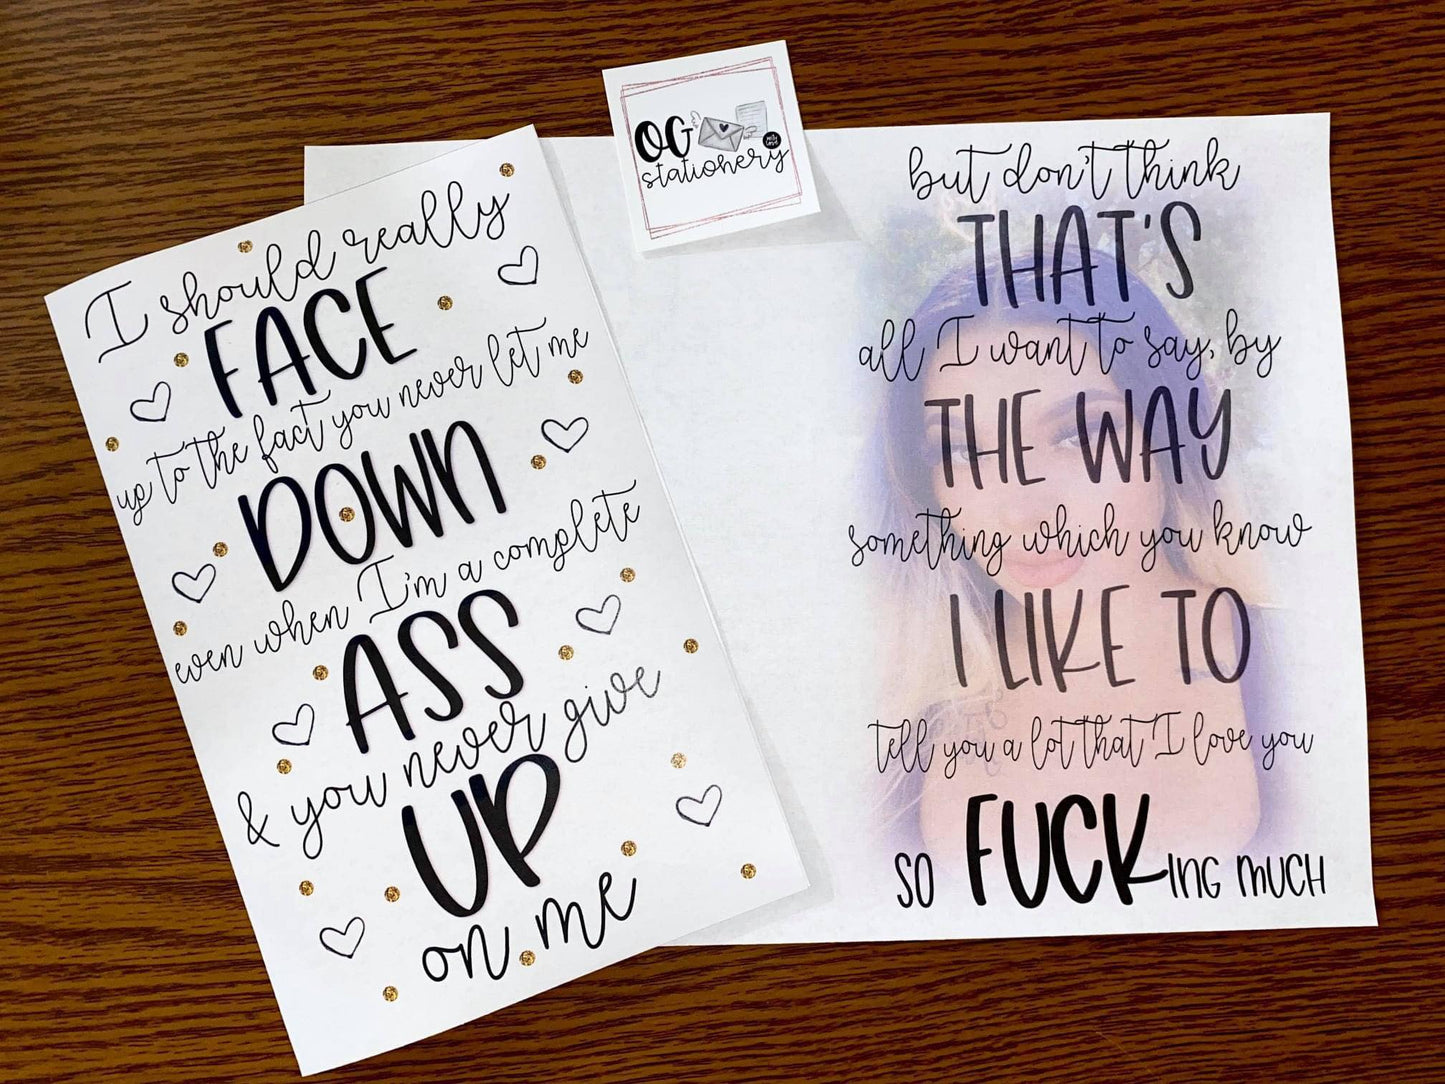 I should really
FACE
up to the fact you never let me
DOWN
even when I'm a complete
ASS
& you never give
UP
on me
OG
stationery
but don't think
THAT'S
all I want to say, by
THE WAY
something which you know
I LIKE TO
tell you a lot that I love you
SO FUCKING MUCH